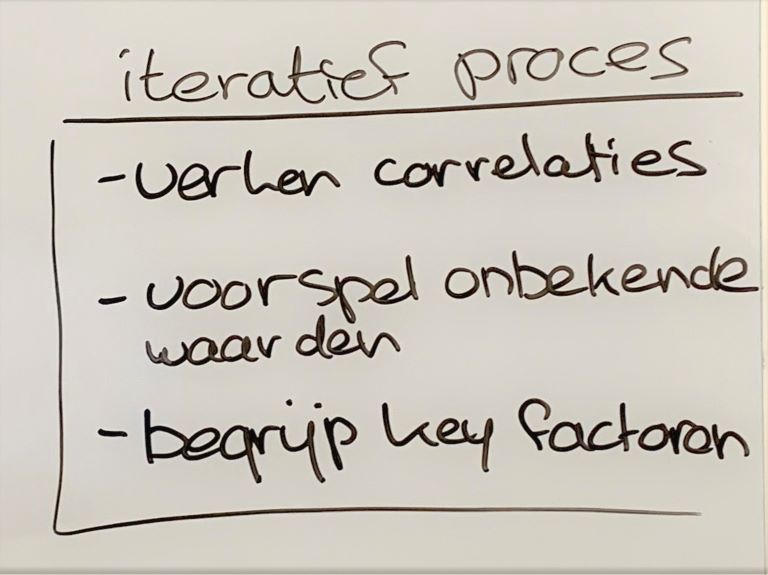 iteratief proces
- verken correlaties
- voorspel onbekende
waarden
- begrijp key factoren